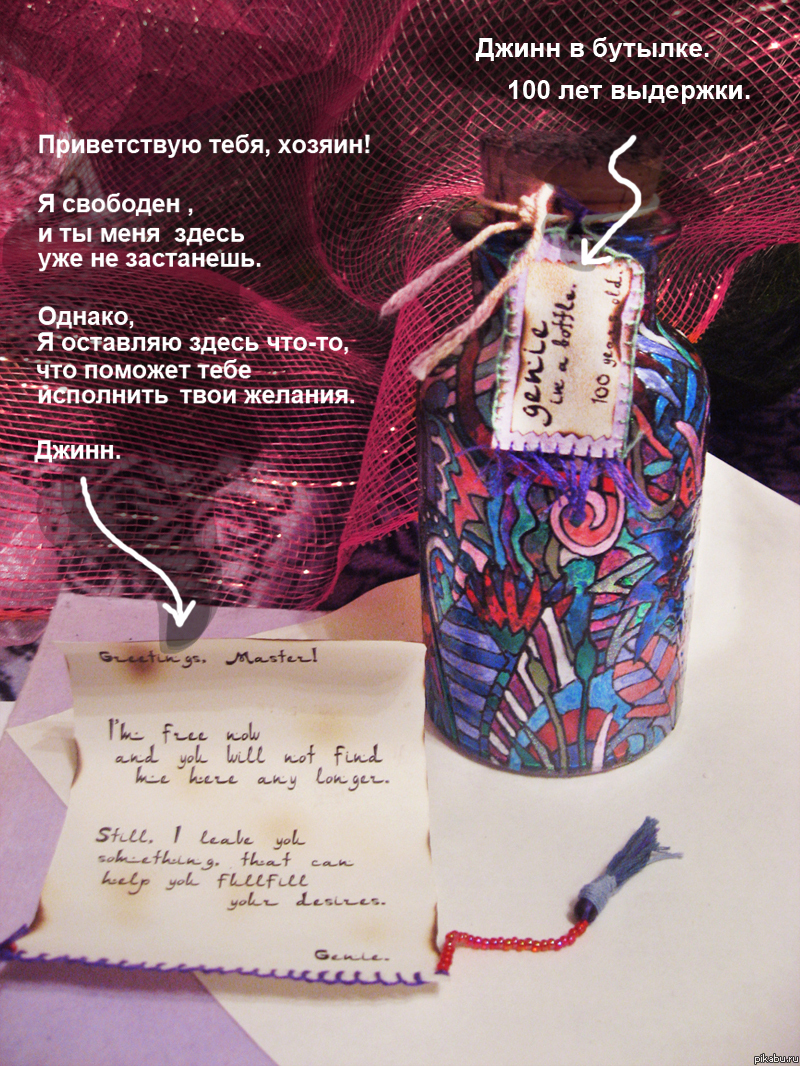 Джинн в бутылке.
100 лет выдержки.
Приветствую тебя, хозяин!
Я свободен ,
и ты меня здесь
уже не застанешь.
Однако,
Я оставляю здесь что-то,
что поможет тебе
исполнить твои желания.
Джинн.
genie
in a bottle.
100 years old.
Greetings, Master!
I'm free now
and you will not find
me here any longer.
Still, I leave you
something, that can
help you fullfill
your desires.
Genie.
pikabu.ru